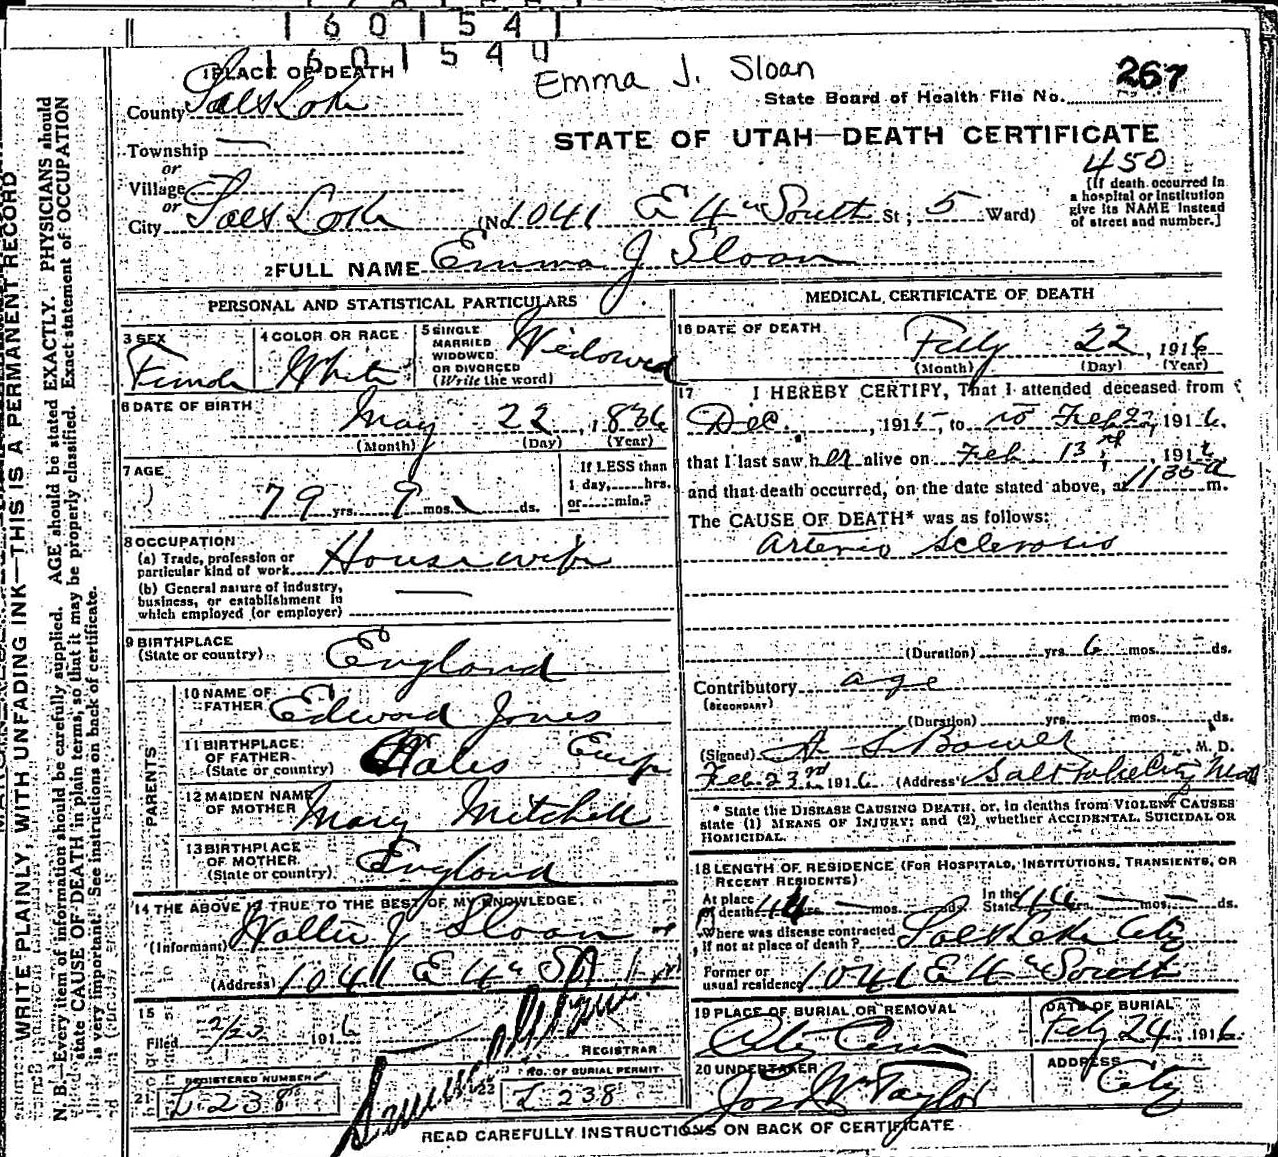 1601541
160 1540
Emma J. Sloan
267
State Board of Health File No.
1 PLACE OF DEATH
County Salt Lake
STATE OF UTAH—DEATH CERTIFICATE
450
Township —
or
Village
or
City Salt Lake (No. 1041 E 4th South St; 5 Ward)
[If death occurred in
a hospital or institution
give its NAME instead
of street and number.]
2 FULL NAME Emma J Sloan
PERSONAL AND STATISTICAL PARTICULARS
3 SEX
Female
4 COLOR OR RACE
White
5 SINGLE
MARRIED
WIDOWED
OR DIVORCED
(Write the word)
Widowed
6 DATE OF BIRTH
May 22, 1836
(Month) (Day) (Year)
7 AGE
79 yrs. 9 mos. ds.
If LESS than
1 day, hrs.
or min.?
8 OCCUPATION
(a) Trade, profession or
particular kind of work Housewife
(b) General nature of industry,
business, or establishment in
which employed (or employer) —
9 BIRTHPLACE
(State or country) England
PARENTS
10 NAME OF
FATHER Edward Jones
11 BIRTHPLACE
OF FATHER
(State or country) Wales
12 MAIDEN NAME
OF MOTHER Mary Mitchell
13 BIRTHPLACE
OF MOTHER
(State or country) England
14 THE ABOVE IS TRUE TO THE BEST OF MY KNOWLEDGE
(Informant) Walter J Sloan
(Address) 1041 E 4th
15
Filed 1916
REGISTRAR
REGISTERED NUMBER
I 238
NO. OF BURIAL PERMIT
I 238
MEDICAL CERTIFICATE OF DEATH
16 DATE OF DEATH
Feby 22, 1916
(Month) (Day) (Year)
17 I HEREBY CERTIFY, That I attended deceased from
Dec., 1915, to Feb 22, 1916,
that I last saw her alive on Feb. 13rd, 1916,
and that death occurred, on the date stated above, at 1135 a m.
The CAUSE OF DEATH* was as follows:
Arterio Sclerosis
(Duration) yrs. 6 mos. ds.
Contributory age
(SECONDARY)
(Duration) yrs. mos. ds.
(Signed) A S Bower M. D.
Feb 23rd, 1916 (Address) Salt Lake City Utah
* State the DISEASE CAUSING DEATH, or, in deaths from VIOLENT CAUSES
state (1) MEANS OF INJURY; and (2) whether ACCIDENTAL, SUICIDAL OR
HOMICIDAL.
18 LENGTH OF RESIDENCE (FOR HOSPITALS, INSTITUTIONS, TRANSIENTS, OR
RECENT RESIDENTS)
At place
of death 44 yrs. — mos. ds. In the
State yrs. — mos. — ds.
Where was disease contracted
if not at place of death? Salt Lake City
Former or
usual residence 1041 E 4th South
19 PLACE OF BURIAL OR REMOVAL
City Cem
DATE OF BURIAL
Feby 24, 1916
20 UNDERTAKER
Jos Wm Taylor
ADDRESS
City
READ CAREFULLY INSTRUCTIONS ON BACK OF CERTIFICATE
WRITE PLAINLY, WITH UNFADING INK—THIS IS A PERMANENT RECORD
N. B.—Every item of information should be carefully supplied. AGE should be stated EXACTLY. PHYSICIANS should
state CAUSE OF DEATH in plain terms, so that it may be properly classified. Exact statement of OCCUPATION
is very important. See instructions on back of certificate.